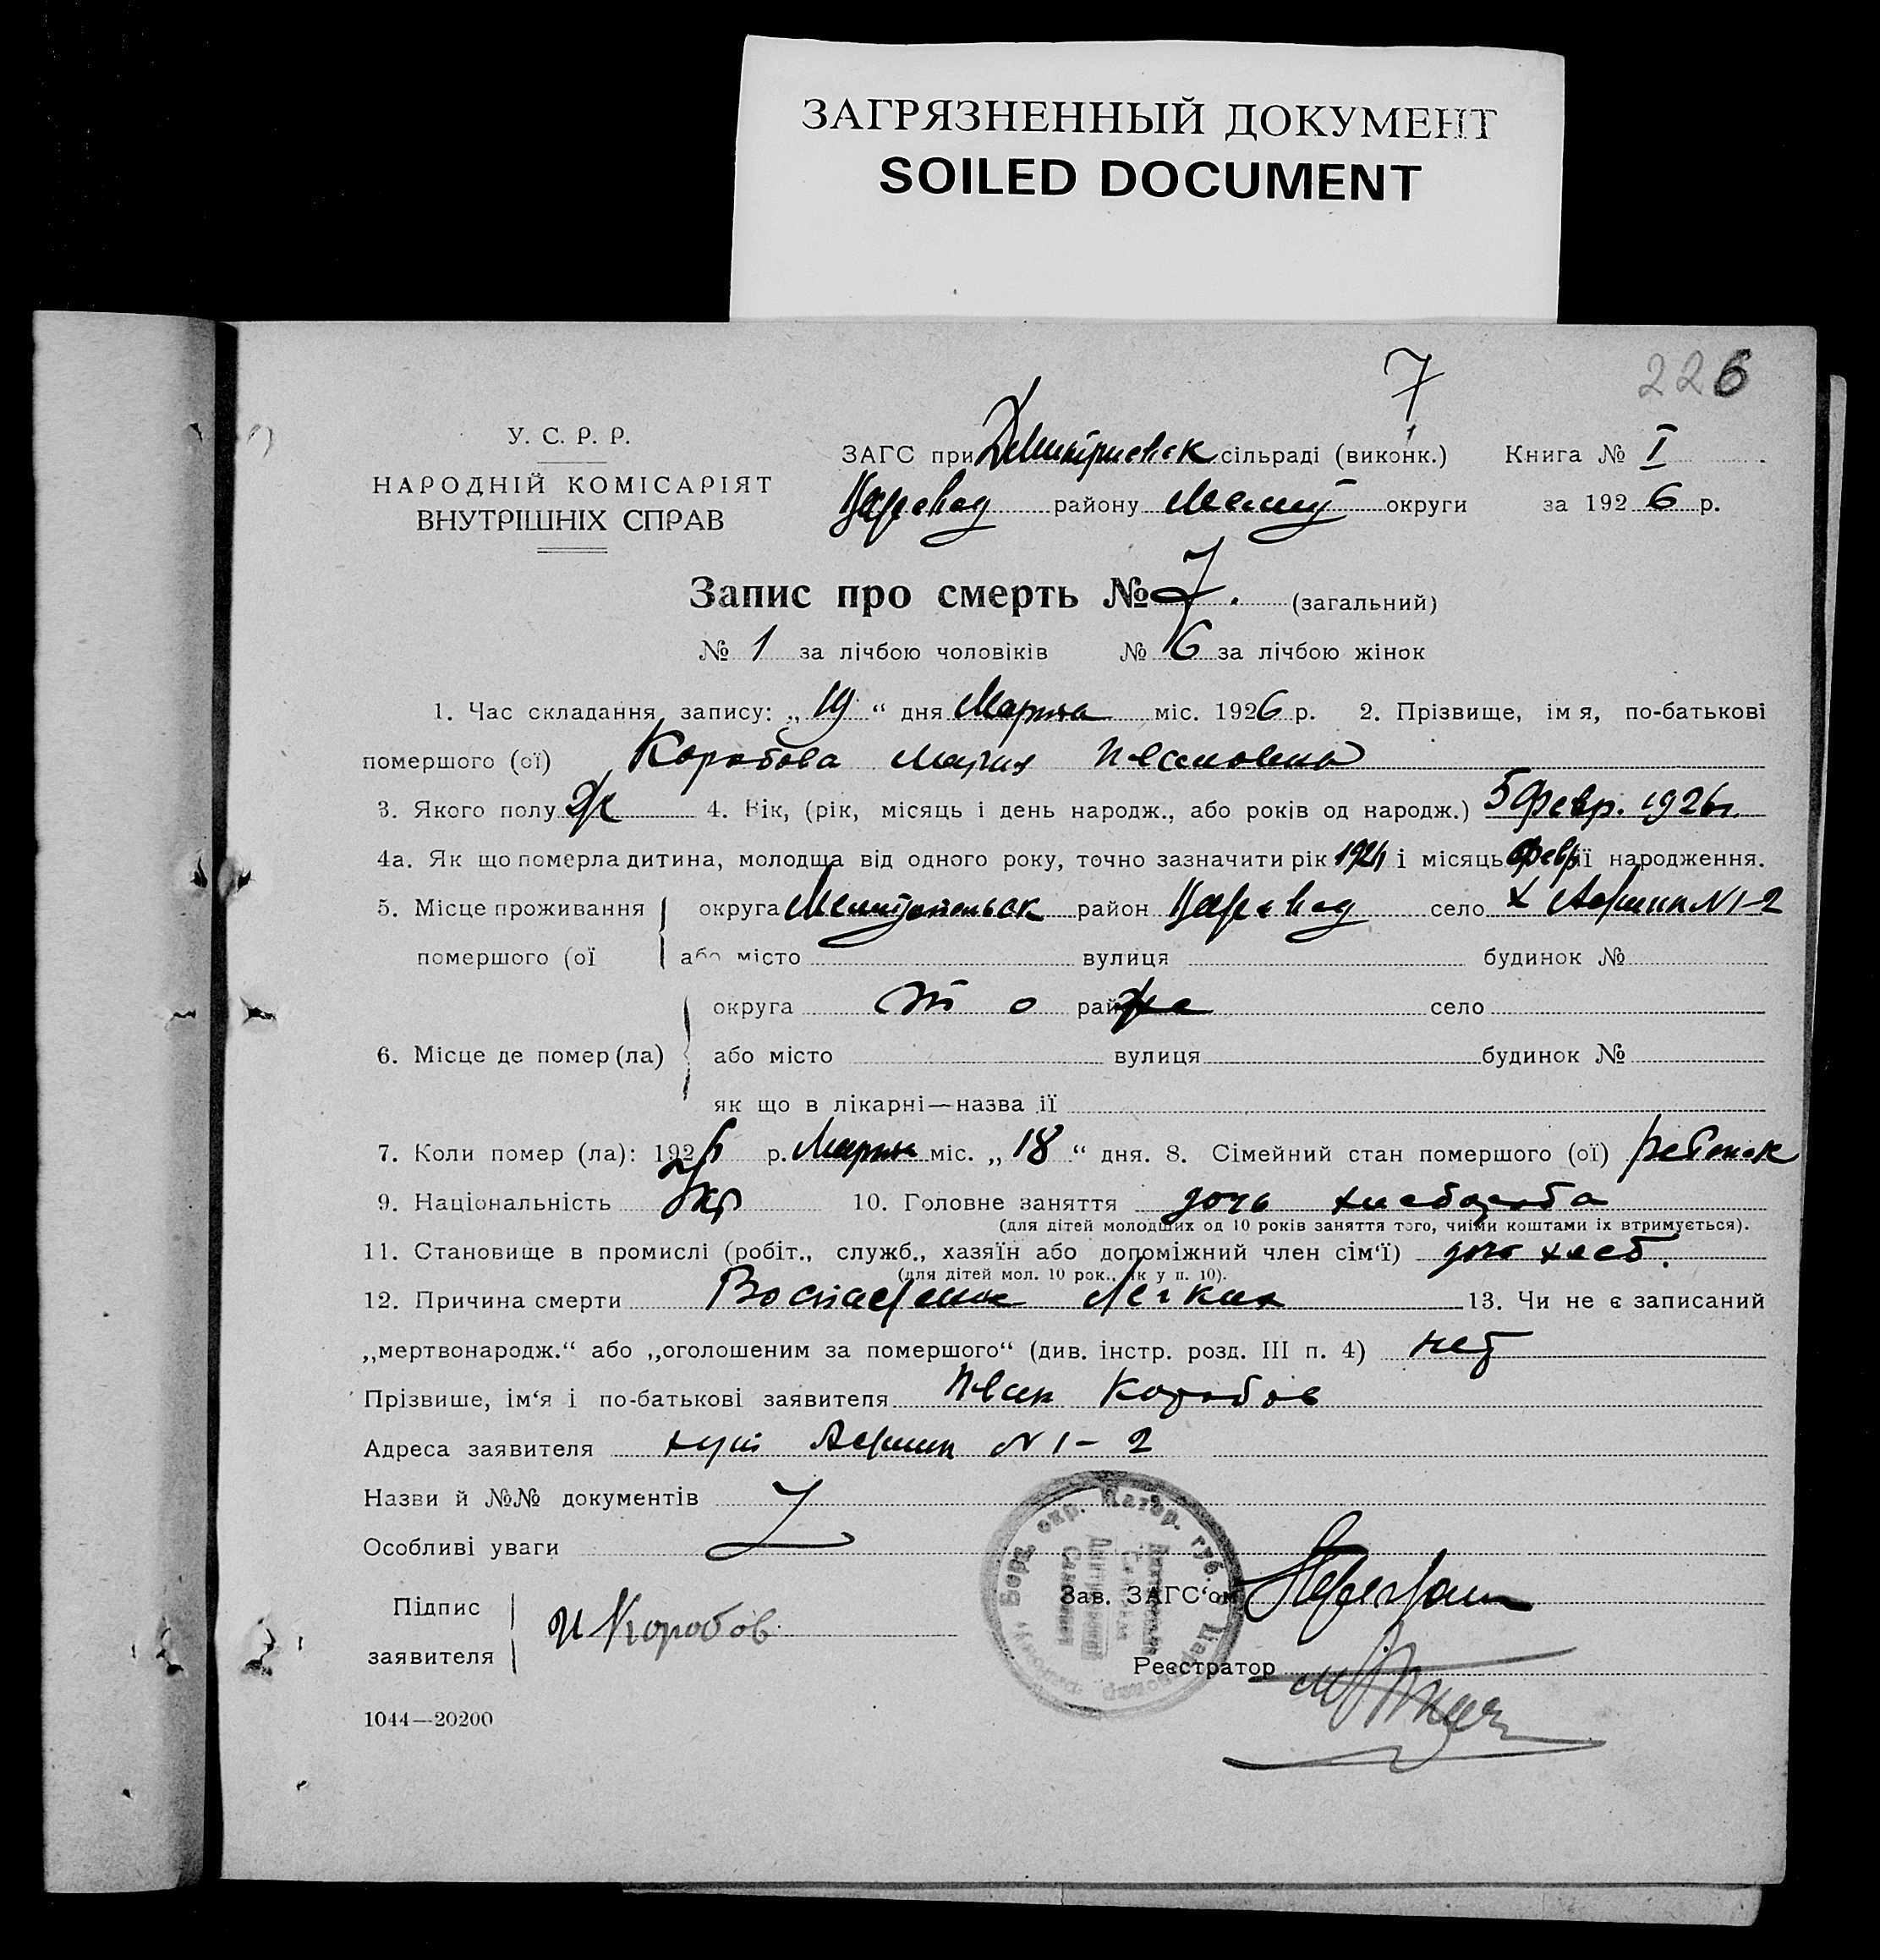 ЗАГРЯЗНЕННЫЙ ДОКУМЕНТ
SOILED DOCUMENT
7
226
У. С. Р. Р.
НАРОДНІЙ КОМІСАРІЯТ
ВНУТРІШНІХ СПРАВ
ЗАГС при Дмитриевск сільраді (виконк.) Книга № I
Царевод району Мелит округи за 1926 р.
Запис про смерть № 7. (загальний)
№ 1 за лічбою чоловіків № 6 за лічбою жінок
1. Час складання запису: „19“ дня Марта міс. 1926 р. 2. Прізвище, імя, по-батькові
помершого (ої) Коробова Мария Ивановна
3. Якого полу Ж 4. Вік, (рік, місяць і день народж., або років од народж.) 5 февр. 1926 г.
4а. Як що померла дитина, молодша від одного року, точно зазначити рік і місяць февр її народження.
5. Місце проживання округа Мелитопольск район Царевод село х
помершого (ої або місто вулиця будинок №
округа то рай же село
6. Місце де помер (ла) або місто вулиця будинок №
як що в лікарні—назва її
7. Коли помер (ла): 1926 р. Марта міс. „18“ дня. 8. Сімейний стан помершого (ої) ребенок
9. Національність Укр 10. Головне заняття дочь хлебороба
(для дітей молодших од 10 років заняття того, чиїми коштами їх втримується).
11. Становище в промислі (робіт., служб., хазяїн або допоміжний член сім‘ї) дочь хлеб.
(для дітей мол. 10 рок., як у п. 10).
12. Причина смерти Воспаление Легких 13. Чи не є записаний
„мертвонародж.“ або „оголошеним за помершого“ (див. інстр. розд. III п. 4) нет
Прізвише, ім‘я і по-батькові заявителя Иван Коробов
Адреса заявителя хут № 1-2
Назви й №№ документів
Особливі уваги
Берд. окр. Катер. губ.
Підпис
заявителя И Коробов
Зав. ЗАГС‘ом
Реєстратор
1044—20200